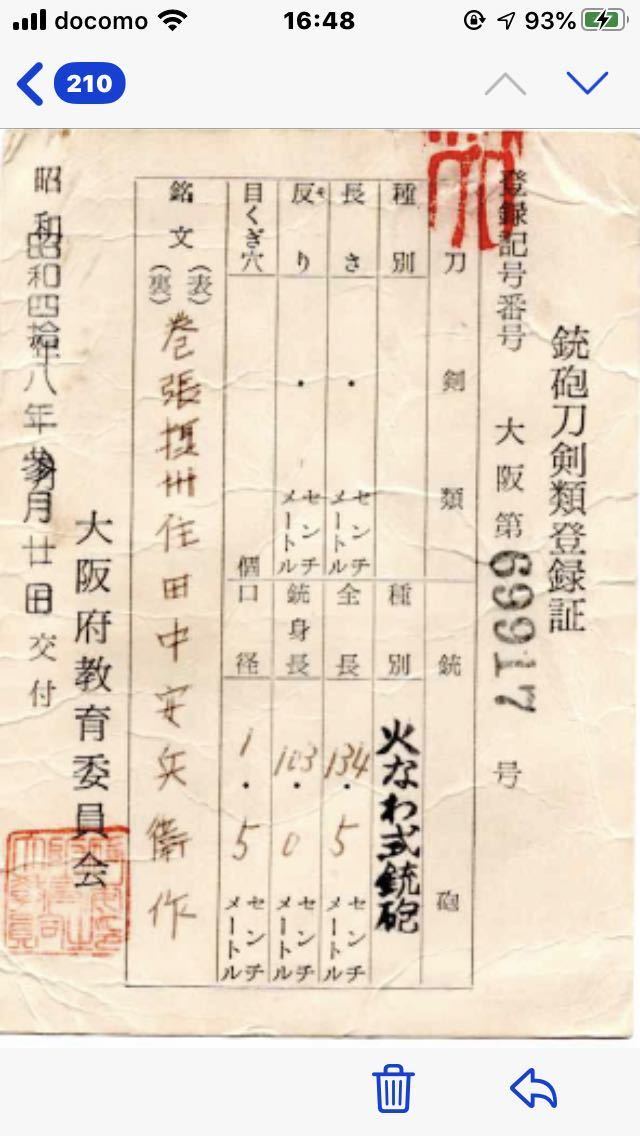 docomo 16:48 93%
210
銃砲刀剣類登録証
登録記号番号 大阪第69917号
刀剣類 銃砲
種別 種別 火なわ式銃砲
長さ ・ センチメートル 全長 134・5 センチメートル
反り ・ センチメートル 銃身長 103・0 センチメートル
目くぎ穴 個 口径 1・5 センチメートル
銘文 (表) (裏) 巻張摂州住田中安兵衛作
大阪府教育委員会
昭和 昭和四拾八年 月廿日交付